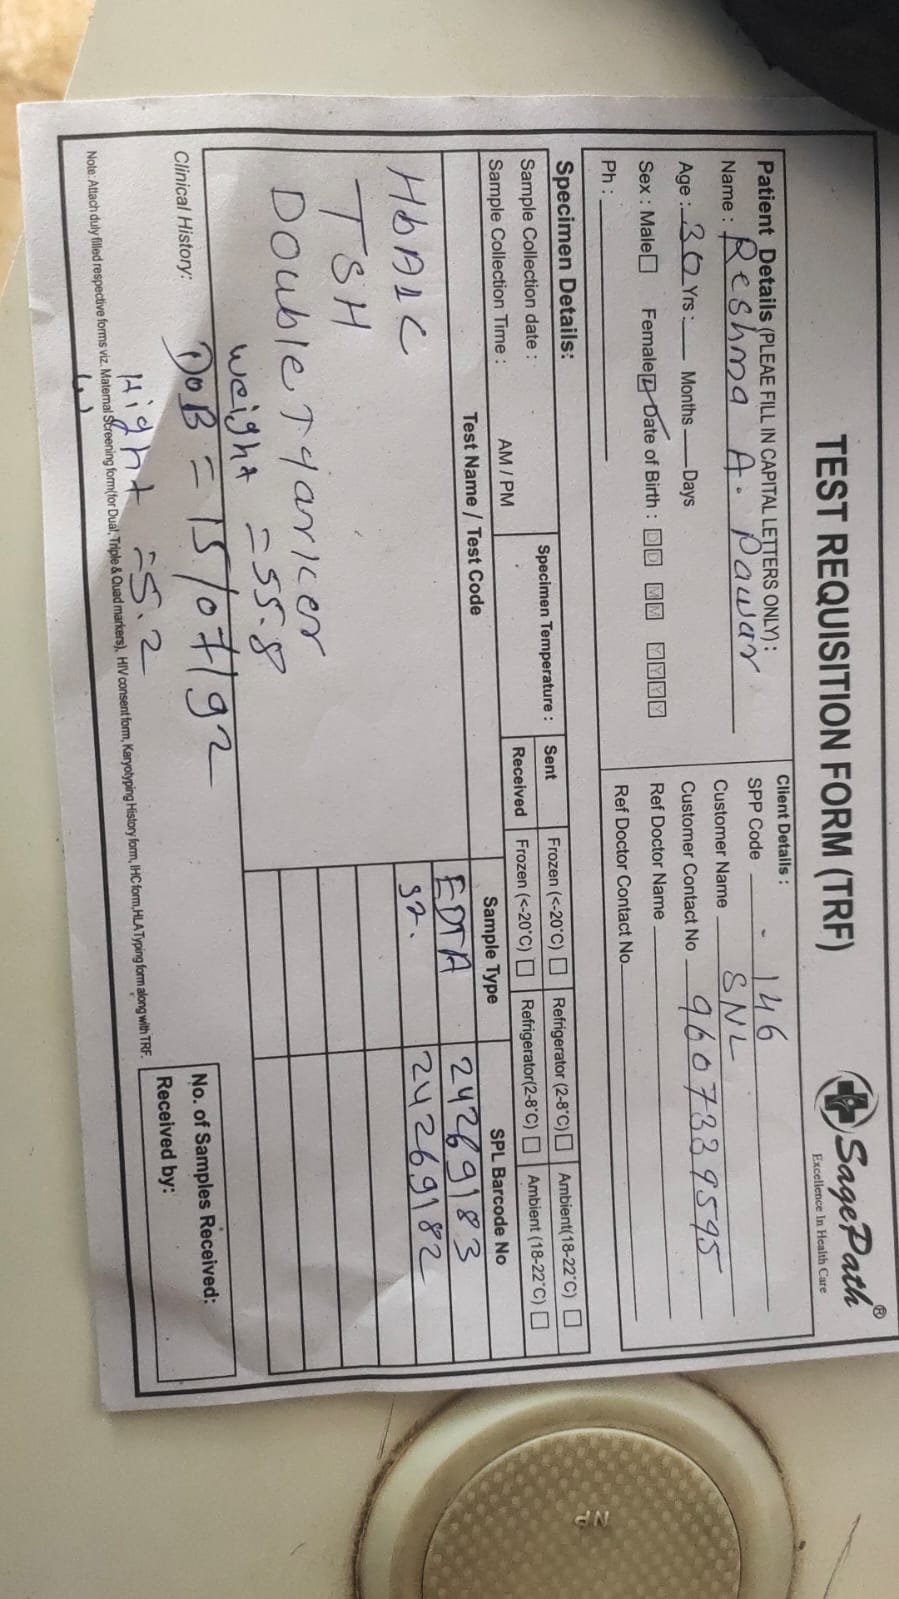 TEST REQUISITION FORM (TRF)
SagePath®
Excellence In Health Care
Patient Details (PLEAE FILL IN CAPITAL LETTERS ONLY):
Name : Reshma A. Pawar
Age : 30 Yrs : Months Days
Sex : Male Female Date of Birth : DD MM YYYY
Ph :
Client Details :
SPP Code - 146
Customer Name SNL
Customer Contact No 9607339595
Ref Doctor Name
Ref Doctor Contact No
Specimen Details:
Sample Collection date :
Sample Collection Time : AM / PM
Specimen Temperature :
Sent Frozen (<-20°C) Refrigerator (2-8°C) Ambient(18-22°C)
Received Frozen (<-20°C) Refrigerator(2-8°C) Ambient (18-22°C)
Test Name / Test Code Sample Type SPL Barcode No
HbA1c EDTA 24269183
TSH 24269182
Double
weight = 55.8
Clinical History: DoB = 15/07/92
Hight = 5.2
No. of Samples Received:
Received by:
Note: Attach duly filled respective forms viz. Maternal Screening form(for Dual, Triple & Quad markers), HIV consent form, Karyotyping History form, IHC form,HLA Typing form along with TRF.